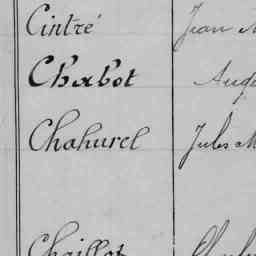 Cintré Jean
Chabot
Chahurel Jules M
Chaillot